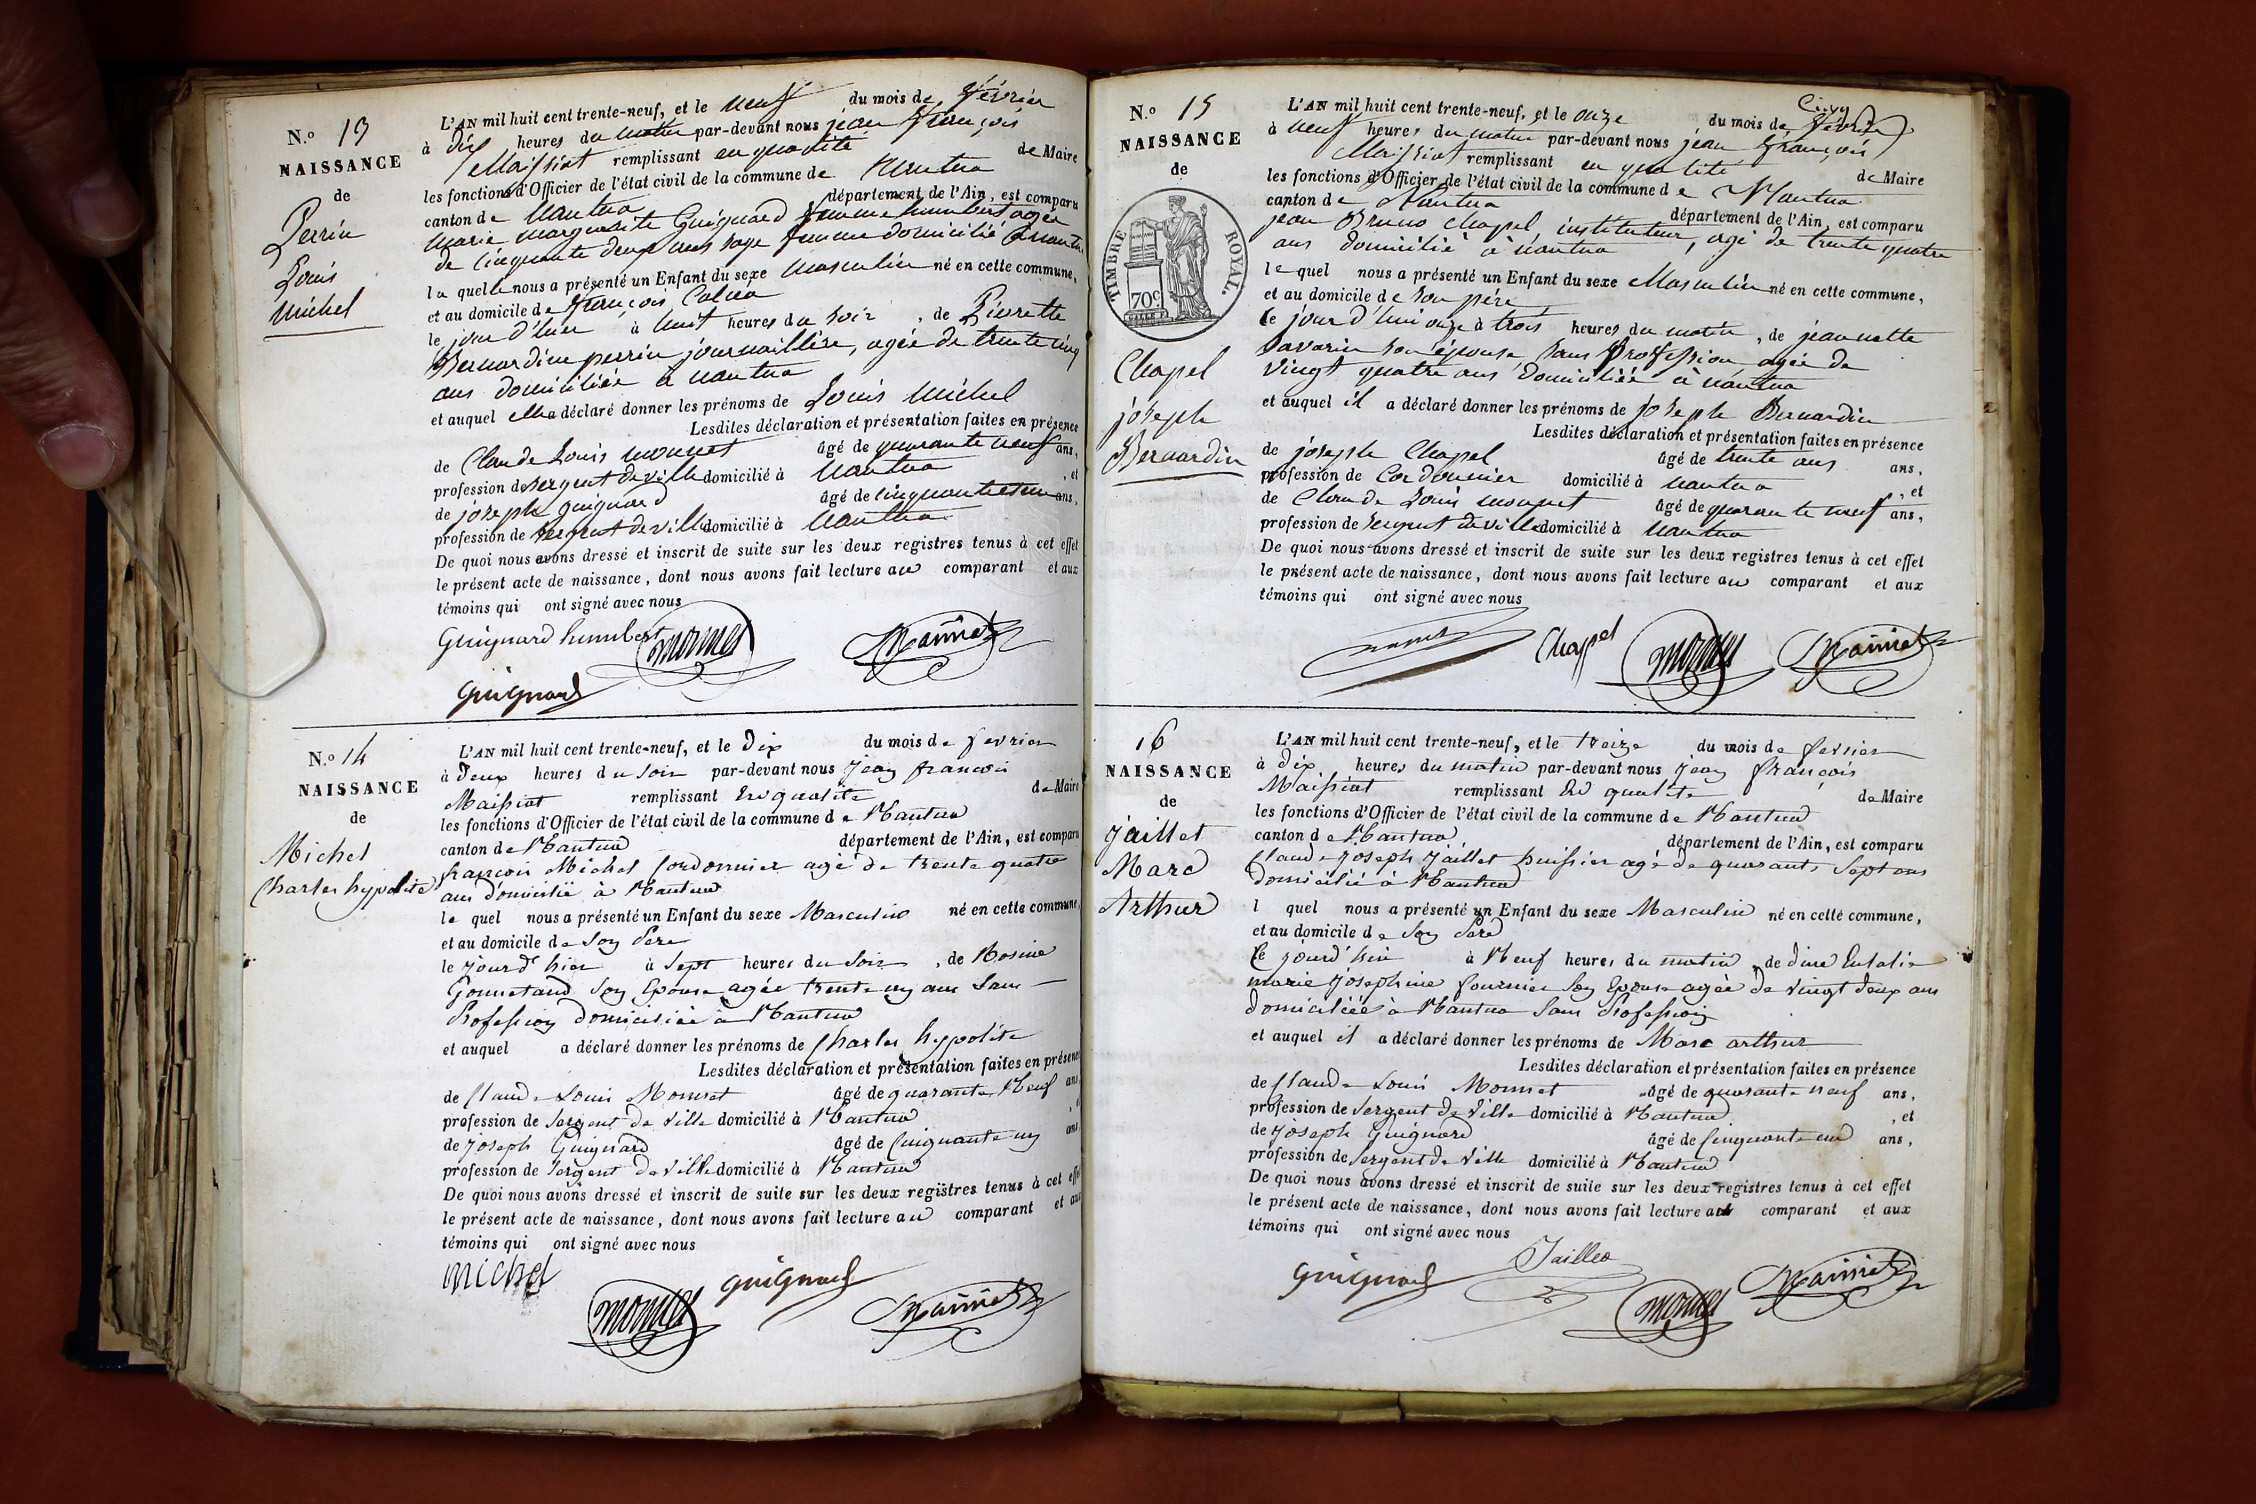 N.o 13
NAISSANCE
de
Perrin
Louis
Michel
L'AN mil huit cent trente-neuf, et le neuf du mois de février
à dix heures du matin par-devant nous jean françois
Maissiat remplissant en qualité de Maire
les fonctions d'Officier de l'état civil de la commune de Nantua
canton de Nantua département de l'Ain, est comparu
marie marguerite Guignard femme humbert agée
de cinquante deux ans sage femme domicilié à nantua
la quelle nous a présenté un Enfant du sexe masculin né en cette commune,
et au domicile de françois
le jour d'hier à huit heures du soir, de Pierrette
Bernardine perrin journaillère, agée de trente cinq
ans domiciliée à nantua
et auquel elle a déclaré donner les prénoms de Louis Michel
Lesdites déclaration et présentation faites en présence
de Claude Louis monnet âgé de quarante neuf ans,
profession de sergent de ville domicilié à nantua, et
de joseph guignard âgé de cinquante et un ans,
profession de sergent de ville domicilié à nantua
De quoi nous avons dressé et inscrit de suite sur les deux registres tenus à cet effet
le présent acte de naissance, dont nous avons fait lecture au comparant et aux
témoins qui ont signé avec nous
Guignard humbert monnet
Guignard
N.o 14
NAISSANCE
de
Michel
Charles hypolite
L'AN mil huit cent trente-neuf, et le dix du mois de fevrier
à deux heures du soir par-devant nous jean francois
Maissiat remplissant en qualité de Maire
les fonctions d'Officier de l'état civil de la commune de Nantua
canton de Nantua département de l'Ain, est comparu
francois Michel Cordonnier agé de trente quatre
ans domicilié à Nantua
le quel nous a présenté un Enfant du sexe Masculin né en cette commune,
et au domicile de son Pere
le jour d'hier à sept heures du soir, de Rosine
Gonnetand son Epouse agée trente un ans sans
Profession domiciliée à Nantua
et auquel a déclaré donner les prénoms de Charles hypolite
Lesdites déclaration et présentation faites en présence
de Claude Louis Monnet âgé de quarante Neuf ans
profession de sergent de ville domicilié à Nantua
de joseph Guignard âgé de Cinquante un ans
profession de sergent de ville domicilié à Nantua
De quoi nous avons dressé et inscrit de suite sur les deux registres tenus à cet effet
le présent acte de naissance, dont nous avons fait lecture au comparant et aux
témoins qui ont signé avec nous
michel
monnet guignard
N.o 15
NAISSANCE
de
TIMBRE ROYAL.
70c
Chapel
joseph
Bernardin
L'AN mil huit cent trente-neuf, et le onze du mois de février
à neuf heures du matin par-devant nous jean françois
Maissiat remplissant en qualité de Maire
les fonctions d'Officier de l'état civil de la commune de Nantua
canton de Nantua département de l'Ain, est comparu
jean Bruno Chapel, instituteur, agé de trente quatre
ans domicilié à nantua
le quel nous a présenté un Enfant du sexe Masculin né en cette commune,
et au domicile de son père
le jour d'hui onze à trois heures du matin, de jeannette
savarin son épouse, sans profession agée de
vingt quatre ans domiciliée à nantua
et auquel il a déclaré donner les prénoms de joseph Bernardin
Lesdites déclaration et présentation faites en présence
de joseph Chapel âgé de trente ans ans,
profession de Cordonnier domicilié à nantua, et
de Claude Louis monnet âgé de quarante neuf ans,
profession de sergent de ville domicilié à nantua
De quoi nous avons dressé et inscrit de suite sur les deux registres tenus à cet effet
le présent acte de naissance, dont nous avons fait lecture au comparant et aux
témoins qui ont signé avec nous
Chappel monnet
16
NAISSANCE
de
jaillet
Marc
Arthur
L'AN mil huit cent trente-neuf, et le treize du mois de fevrier
à dix heures du matin par-devant nous jean françois
Maissiat remplissant en qualité de Maire
les fonctions d'Officier de l'état civil de la commune de Nantua
canton de Nantua département de l'Ain, est comparu
Claude joseph jaillet huissier agé de quarante sept ans
domicilié à Nantua
l quel nous a présenté un Enfant du sexe Masculin né en cette commune,
et au domicile de son Pere
le jourd'hui à Neuf heures du matin, de dme Eulalie
marie josephine fournier son Epouse agée de vingt deux ans
domiciliée à Nantua sans Profession
et auquel il a déclaré donner les prénoms de Marc arthur
Lesdites déclaration et présentation faites en présence
de Claude Louis Monnet âgé de quarante neuf ans,
profession de sergent de ville domicilié à Nantua, et
de joseph Guignard âgé de Cinquante un ans,
profession de sergent de ville domicilié à Nantua
De quoi nous avons dressé et inscrit de suite sur les deux registres tenus à cet effet
le présent acte de naissance, dont nous avons fait lecture au comparant et aux
témoins qui ont signé avec nous
guignard Jaillet
monnet